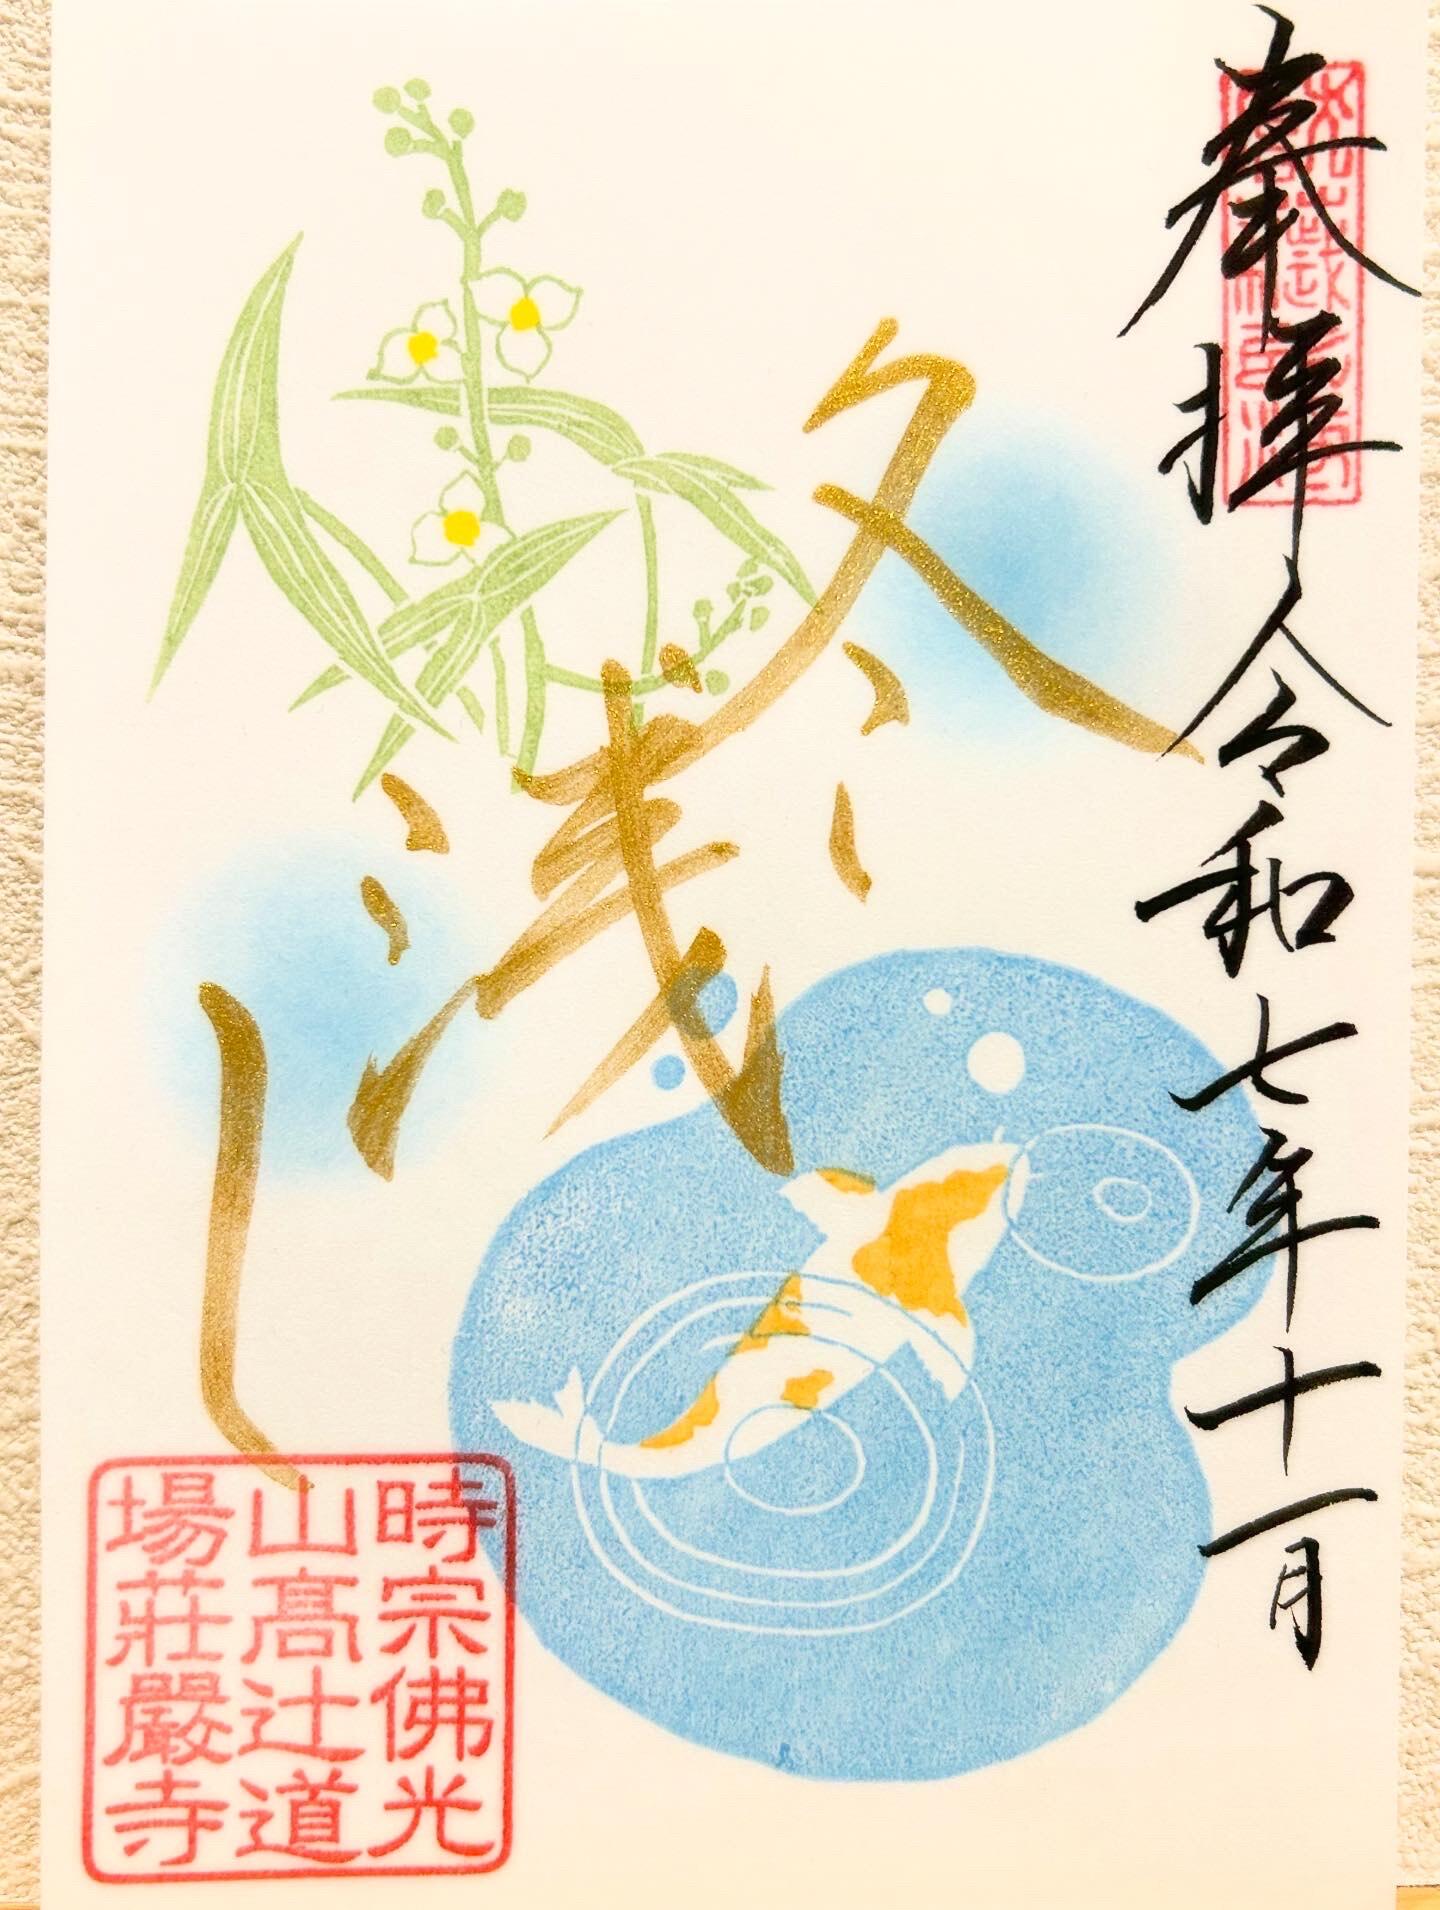 奉拝 令和七年十一月
冬浅し
時宗佛光
山高辻道
場荘嚴寺